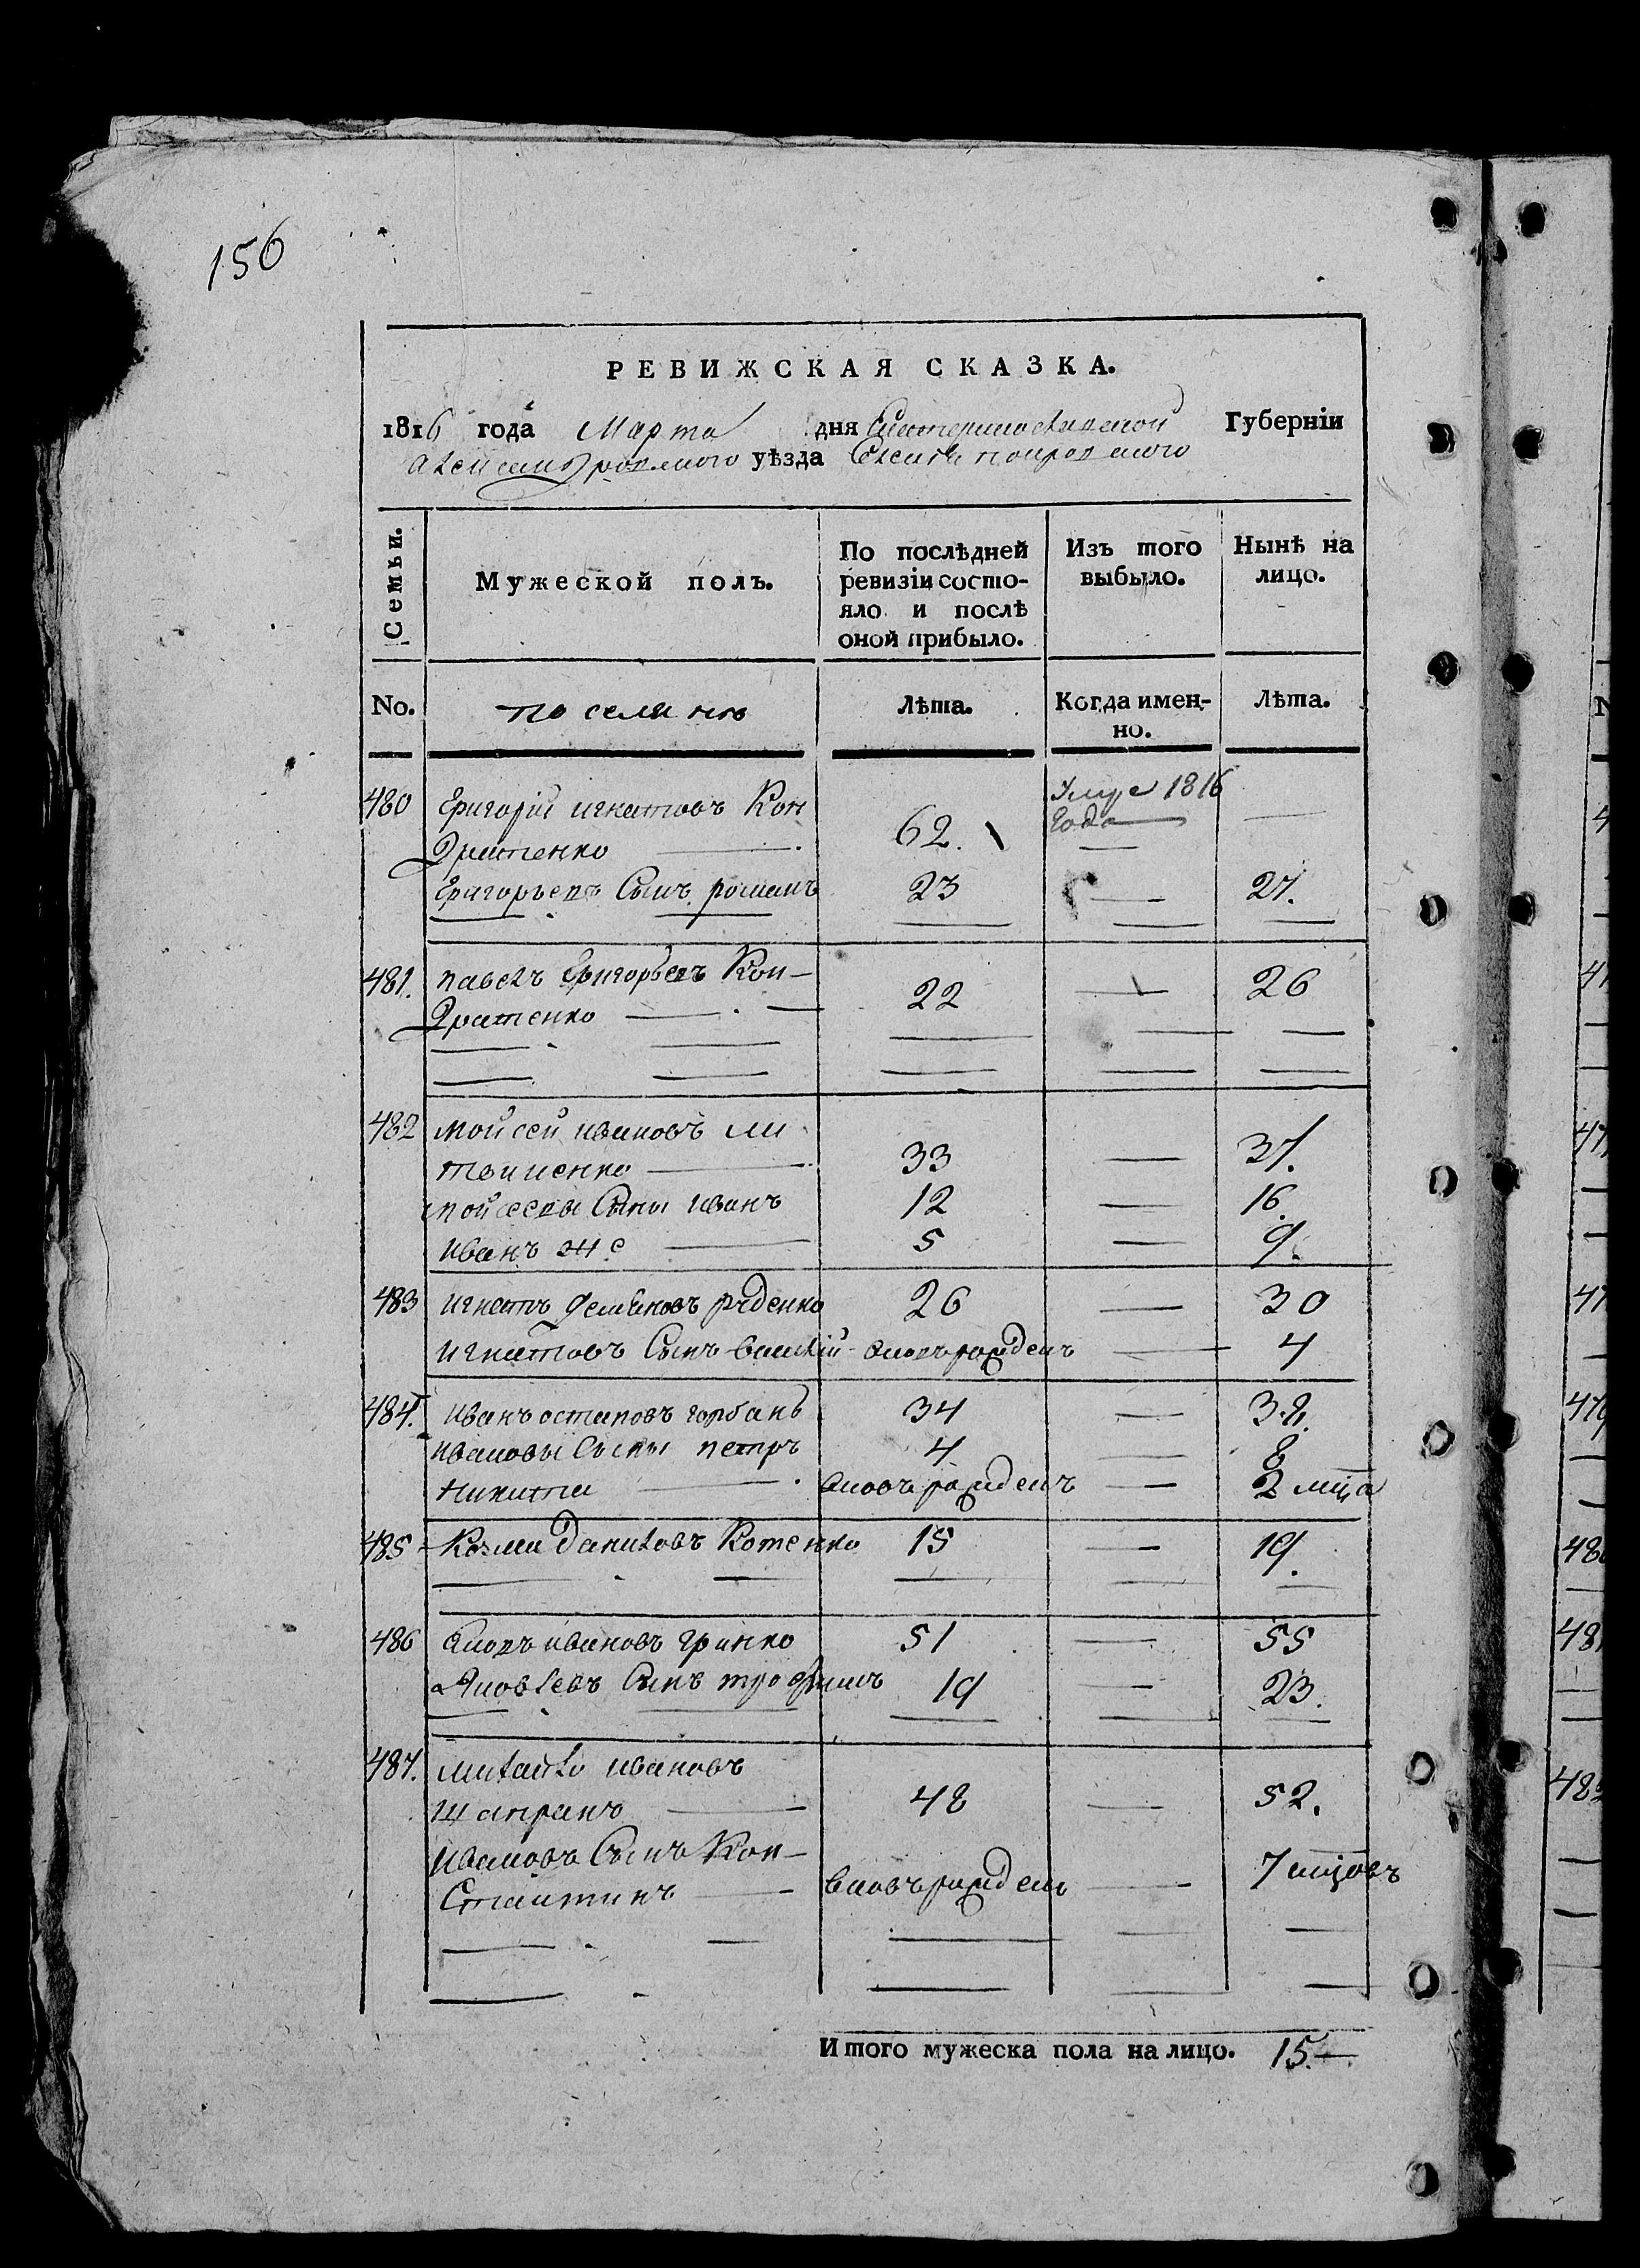 156
РЕВИЖСКАЯ СКАЗКА.
1816 года Марта дня Екатеринославской Губерніи
Александровского уѣзда Села покровского
Семьи.
Мужеской полъ.
По послѣдней ревизіи состо-
яло и послѣ
оной прибыло.
Изъ того
выбыло.
Нынѣ на
лицо.
No.
поселянъ
Лѣта.
Когда имен-
но.
Лѣта.
480 Григорій игнатовъ Кон
дратенко 62. Умре 1816 года
Григорьевъ Сынъ романъ 23 27.
481. павелъ Григорьевъ Кон-
дратенко 22 26
482 мойсей ивановъ ли
твиненко 33 37.
мойсеевы Сыны иванъ 12 16.
иванъ же 5 9.
483 игнатъ демяновъ руденко 26 30
игнатовъ Сынъ василій вновъ рожденъ 4
484. иванъ остаповъ горбань 34 38.
ивановы Сыны петръ 4 8
никита вновъ рожденъ 2 мца
485 Козма даниловъ Котенко 15 19.
486 Яковъ ивановъ гринко 51 55
Яковлевъ Сынъ трофимъ 19 23.
487. михайло ивановъ
шапранъ 48 52.
ивановъ Сынъ Кон-
стантинъ вновъ рожденъ 7 мцовъ
Итого мужеска пола на лицо. 15.—
480
481